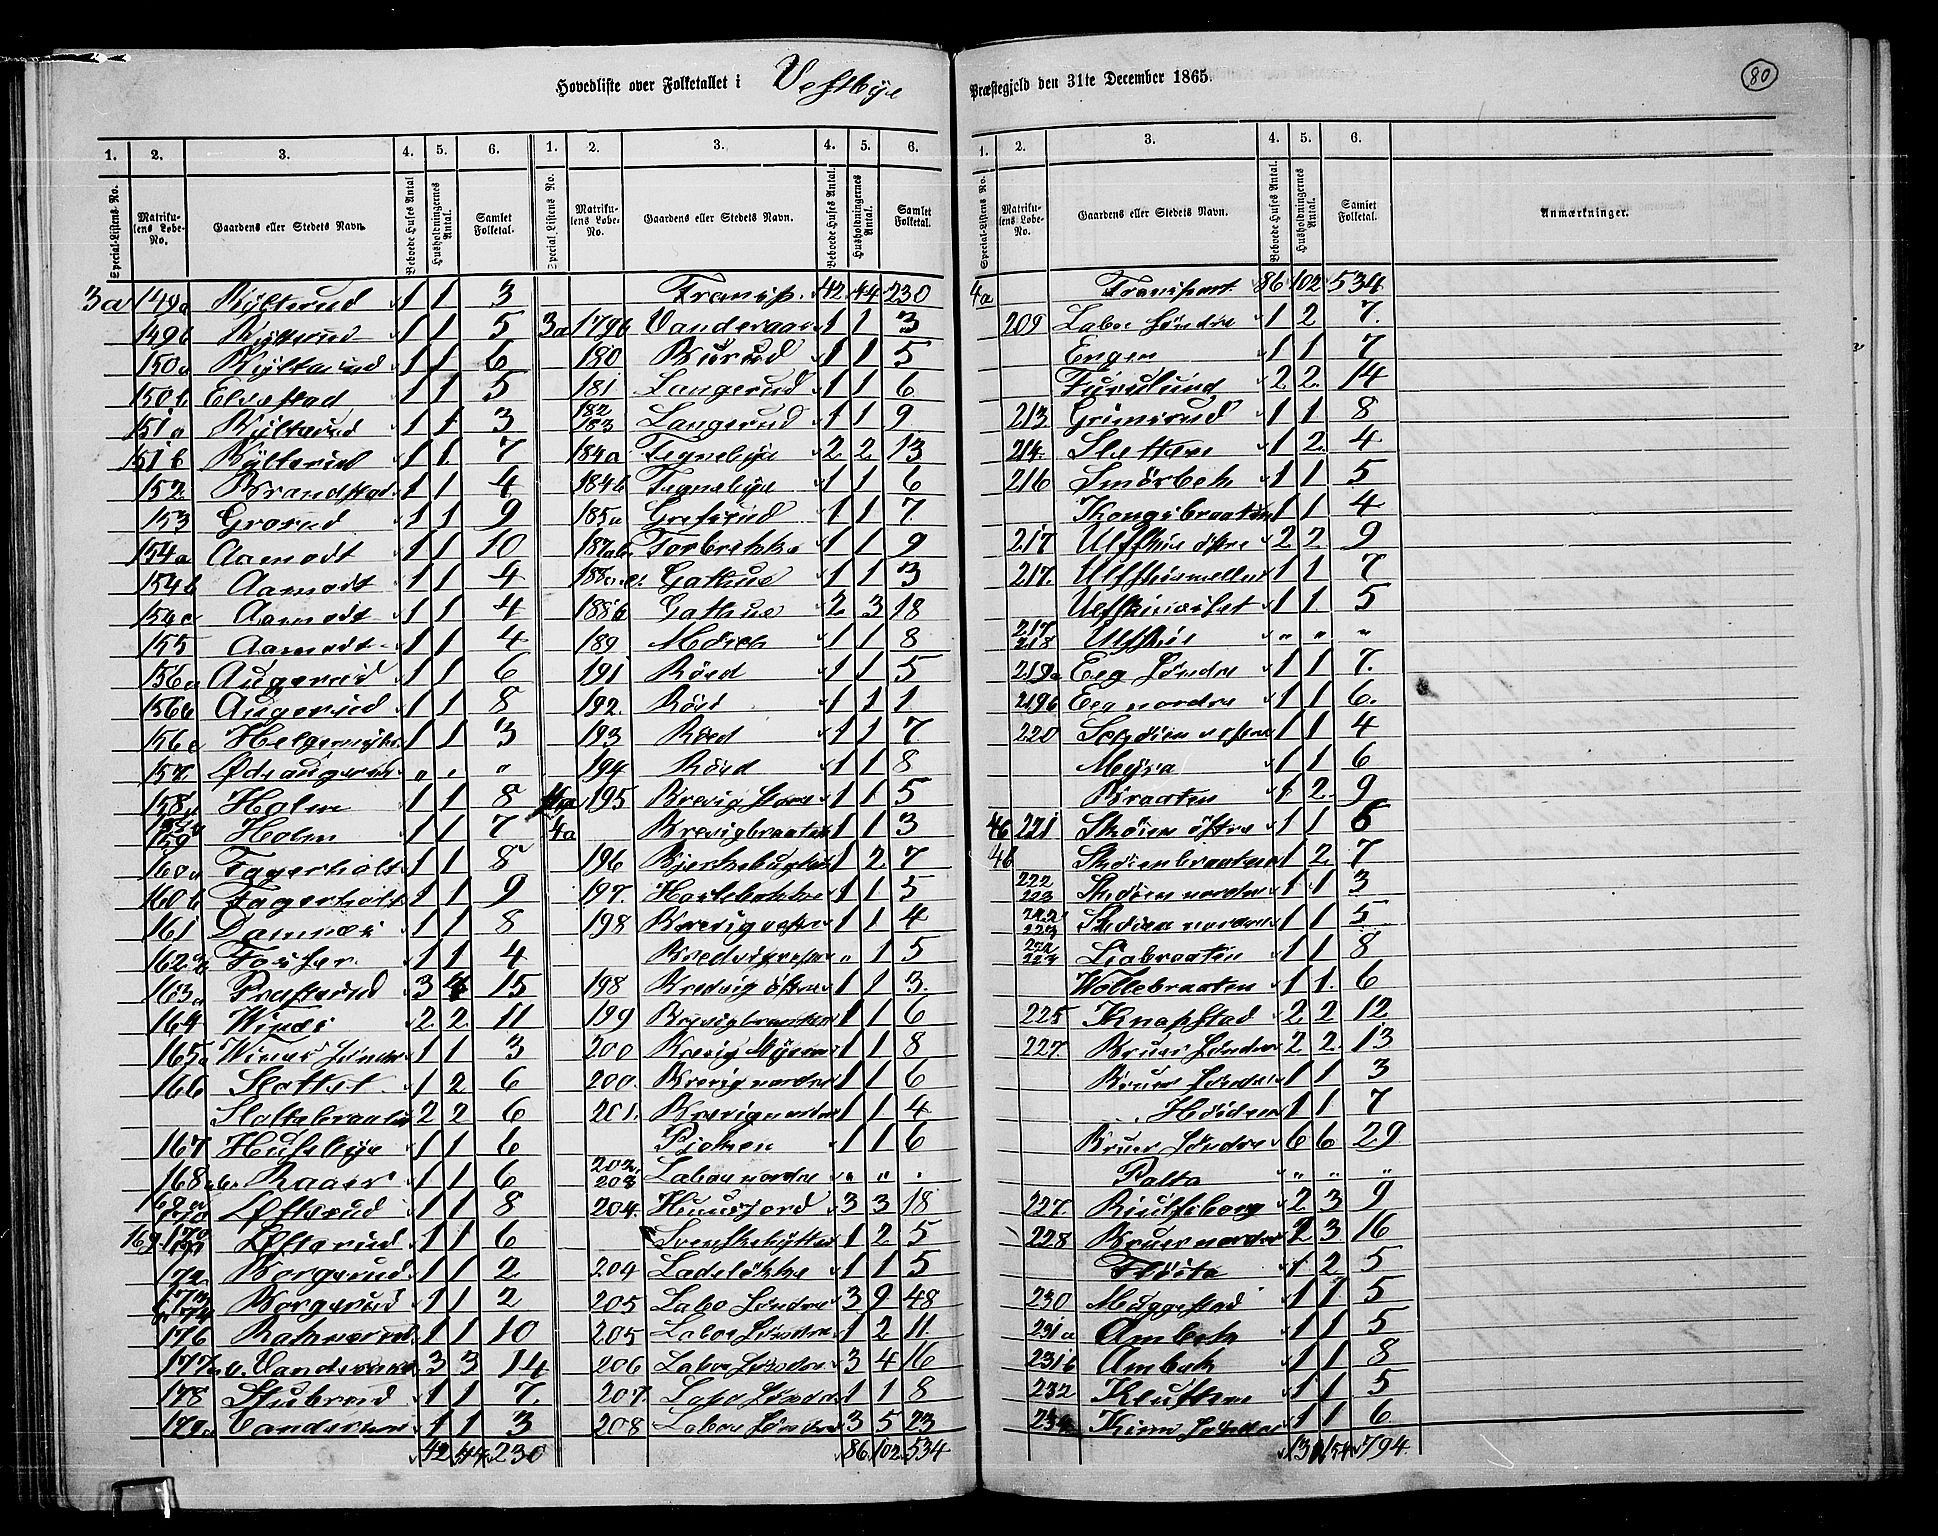 Hovedliste over Folketallet i Vestbye Præstegjeld den 31te December 1865.
80
1. 2. 3. 4. 5. 6. 1. 2. 3. 4. 5. 6.
Special-Listens No. Matrikulens Løbe-No. Gaardens eller Stedets Navn. Beboede Huses Antal Husholdningernes Antal. Samlet Folketal. Special Listens No. Matrikulens Løbe-No. Gaardens eller Stedets Navn. Beboede Huses Antal. Husholdningernes Antal. Samlet Folketal.
3a 149a Kylterud 1 1 3
149b Kylterud 1 1 5
150a Kylterud 1 1 6
150b Elvestad 1 1 5
151a Kylterud 1 1 3
151b Kylterud 1 1 7
152 Brandstad 1 1 4
153 Grorud 1 1 9
154a Aamodt 1 1 10
154b Aamodt 1 1 4
154c Aamodt 1 1 4
155 Aamodt 1 1 4
156a Augerud 1 1 6
156b Augerud 1 1 8
156c 1 1 3
157 " " "
158a Holm 1 1 8
159 Holm 1 1 7
160a Fagerholt 1 1 8
160b Fagerholt 1 1 9
161 Damnæs 1 1 8
162 Fosser 1 1 4
163a Prasterud 3 4 15
164 Winæs 2 2 11
165a Winæs søndre 1 1 3
166 Slottet 1 2 6
Slottebraaten 2 2 6
167 Husebye 1 1 6
168 Raaes 1 1 6
Øfterud 1 1 8
169 Øfterud 1 1 6
172 Borgerud 1 1 2
173 174 Borgerud 1 1 2
176 1 1 10
177 3 3 14
178 Stubrud 1 1 7
179a Vanderaar 1 1 3
42 44 230
Transp. 42 44 230
3a 179b Vanderaar 1 1 3
180 Burud 1 1 5
181 Langerud 1 1 6
182 183 Langerud 1 1 9
184a Tegnebye 2 2 13
184b Tegnebye 1 1 6
185a Grefsrud 1 1 7
187ab Torbrekke 1 1 9
188 Gathue 1 1 3
188b Gathue 2 3 18
189 Mørch 1 1 8
191 Röed 1 1 5
192 Röed 1 1 1
193 Röed 1 1 7
194 Röed 1 1 8
4a 195 Brevig store 1 1 5
4a Brevigbraaten 1 1 3
196 1 2 7
197 1 1 5
198 Brevig vestre 1 1 4
" 1 5
198 Bredvig østre 1 1 3
199 Brevigbraaten 1 1 6
200 Brevig Myren 1 1 8
200 Brevig nordre 1 1 6
201 Brevig nordre 1 1 4
1 1 6
202 203 Laboe nordre " " "
204 3 3 18
Svenskehytten 1 2 5
204 Ladeløkke 1 1 5
205 Labo Søndre 3 9 48
205 Laboe Søndre 1 2 11
206 Laboe Søndre 3 4 16
207 Labo Søndre 1 1 8
208 Laboe Søndre 3 5 23
86 102 534
1. 2. 3. 4. 5. 6.
Special-Listens No. Matrikulens Løbe-No. Gaardens eller Stedets Navn. Beboede Huses Antal. Husholdningernes Antal. Samlet Folketal. Anmærkninger.
4a Transport 86 102 534
209 Laboe Søndre 1 2 7
Engen 1 1 7
Furulund 2 2 14
213 Grimsrud 1 1 8
214 Sletten 1 2 4
216 Smörbek 1 1 5
Kongsbraaten 1 1 4
217 østre 2 2 9
217 1 1 7
1 1 5
217 218 " " "
219a Eeg Søndre 1 1 7
219b Eeg nordre 1 1 6
220 vestre 1 1 4
Myra 1 1 6
Braaten 1 2 9
4b 221 Skøien østre 1 1 6
4b Skøienbraaten 1 2 7
222 223 Skøien nordre 1 1 3
222 223 Skøien nordre 1 1 5
222 223 Liabraaten 1 1 8
Wollebraaten 1 1 6
225 Knapstad 2 2 12
227 Bruer Søndre 2 2 13
Bruer Søndre 1 1 3
1 1 7
Bruer Søndre 6 6 29
Palta " " "
227 2 3 9
228 Bruer nordre 2 3 16
Flöita 1 2 5
230 Maggestad 1 1 5
231a Ambek 1 1 5
231b Ambek 1 1 8
232 Kluften 1 1 5
Søndre 1 1 6
154 794